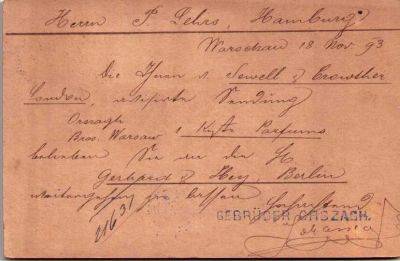 Herrn P. Lehrs, Hamburg
Warschau 18 Nov 93
Die Ihnen v. Sewell & Crowther
London, Sendung
Orszagh
Bros. Warsaw 1 Kiste Parfums
belieben Sie an die H
Gerhard & Hey, Berlin
zu lassen
GEBRÜDER ORSZAGH.